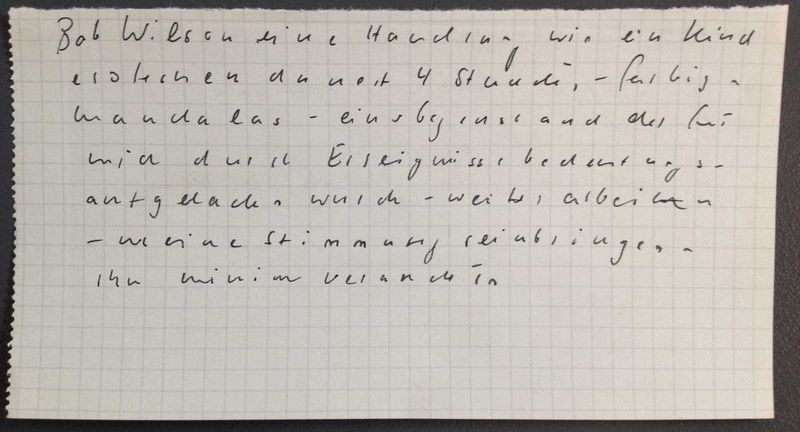 Bob Wilson eine Handlung wie ein Kind
erstechen dauert 4 Stunden, – farbige
mandalas – eins Gegenstand der für
mich durch Ereignisse bedeutungs-
aufgeladen wurde – weiter arbeiten
– meine Stimmung reinbringen
ihn minim verändern